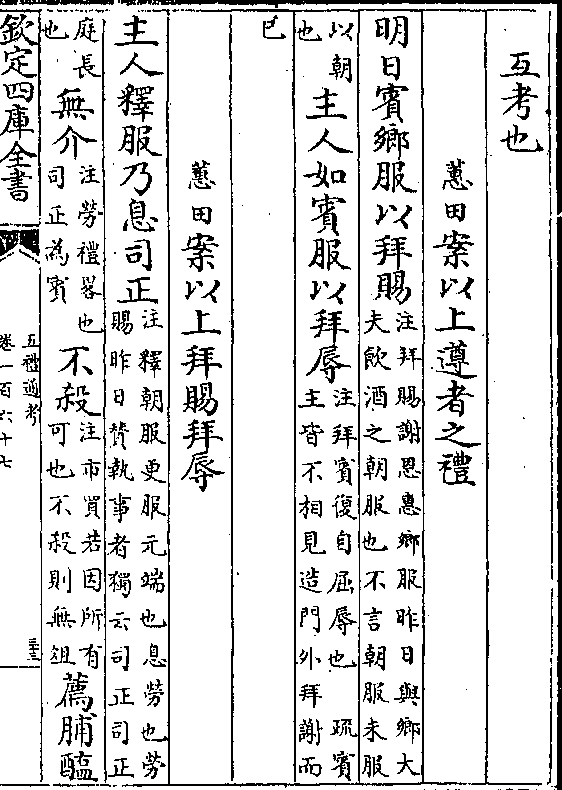 互考也
蕙田案以上遵者之禮
明日賓鄉服以拜賜注拜賜謝恩惠鄉服昨日與鄉大夫飲酒之朝服也不言朝服未服
以朝也主人如賓服以拜辱注拜賓復自屈辱也 疏賓主皆不相見造門外拜謝而
已
蕙田案以上拜賜拜辱
主人釋服乃息司正注釋朝服更服元端也息勞也勞賜昨日贊執事者獨云司正司正
庭長也無介注勞禮畧也司正為賓不殺注市買若因所有可也不殺則無俎薦脯醢
欽定四庫全書
五禮通考
卷一百六十七